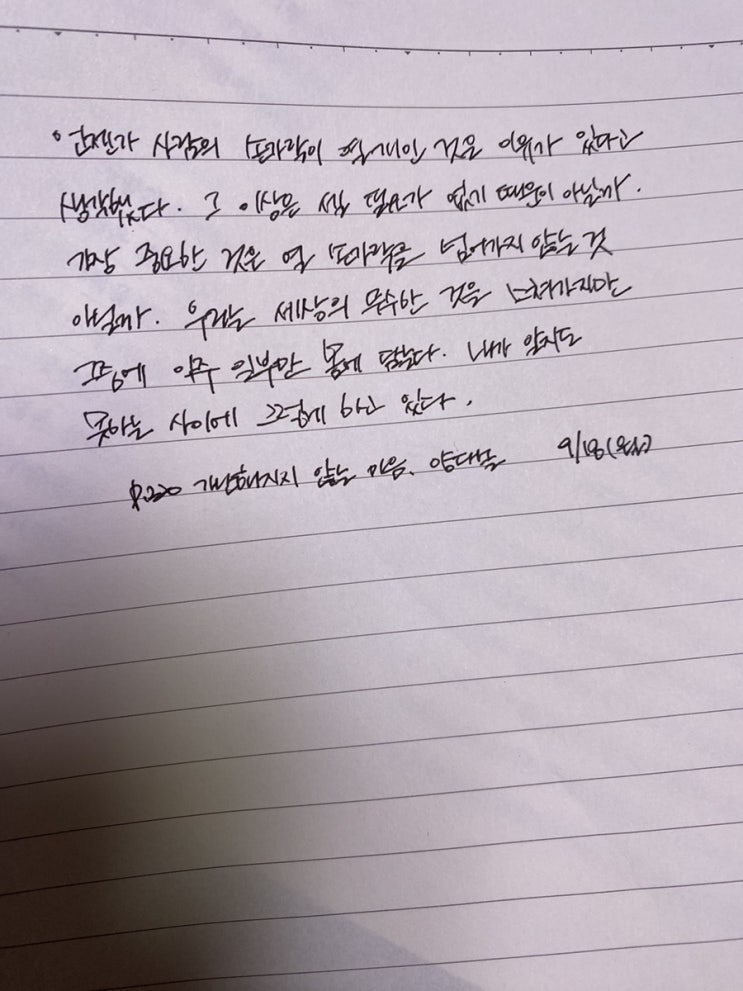 ◦ 언젠가 사람의 손가락이 열 개인 것은 이유가 있다고
생각했다. 그 이상은 셀 필요가 없기 때문이 아닐까.
가장 중요한 것은 열 손가락을 넘어가지 않는 것
아닐까. 우리는 세상의 무수한 것을 느껴가지만
그중에 아주 일부만 몸에 남는다. 내가 알지도
못하는 사이에 그렇게 하고 있다.
p.220 개 않는 마음. 양다솔 9/18